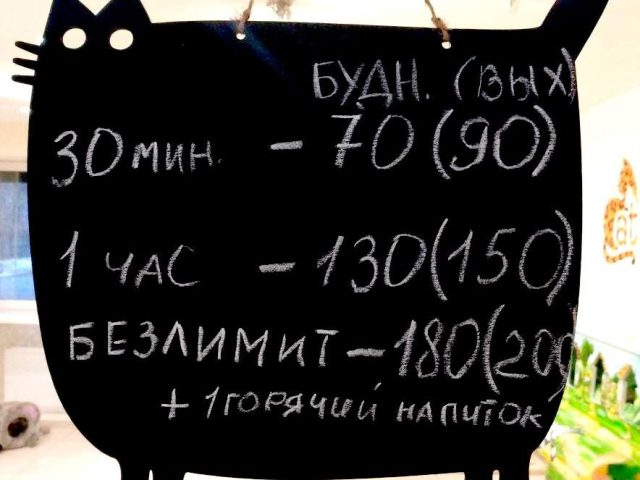 БУДН. (ВЫХ)
30 МИН. - 70 (90)
1 ЧАС - 130 (150)
БЕЗЛИМИТ - 180 (200
+ 1 ГОРЯЧИЙ НАПИТОК